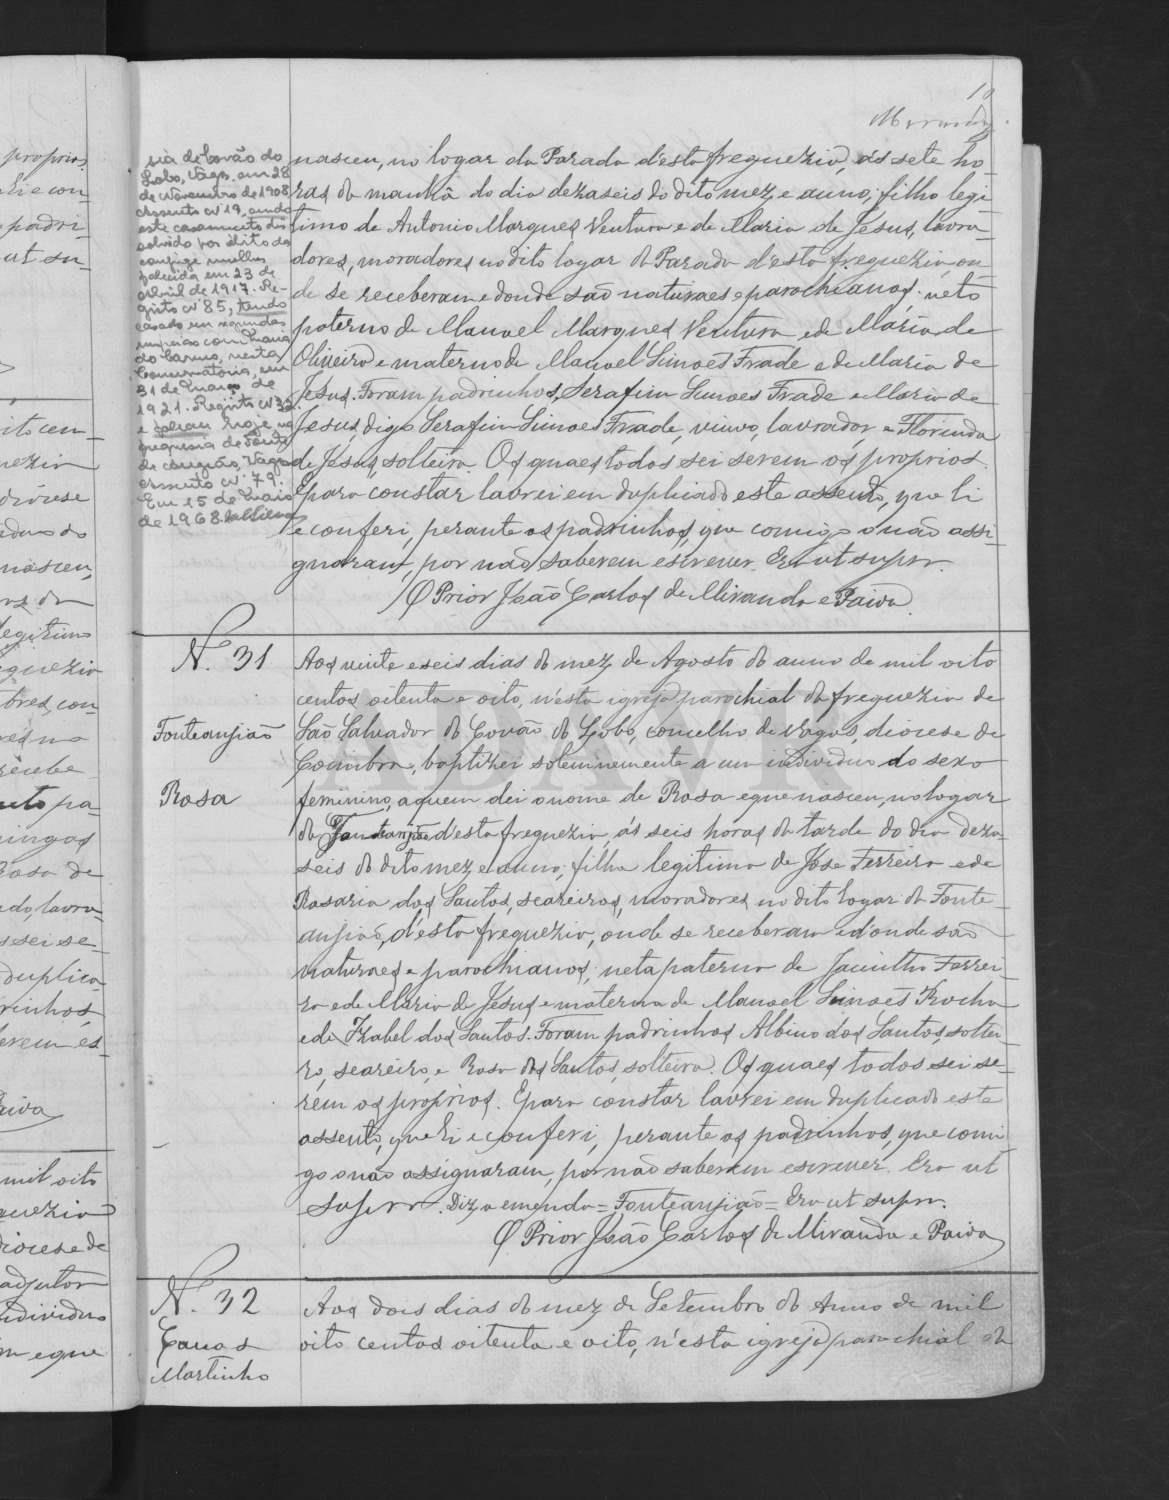 10
Miranda
sia de Covão do
Lobo, Vagos em 28
de Novembro de 1908
Assento Nº 19, sendo
este casamento dis
solvido por óbito da
conjuge mulher
falecida em 23 de
Abril de 1917. Re-
gisto Nº 85, tendo
casado em segundas
nupcias com Maria
do Carmo, nesta
Conservatória, em
31 de Março de
1921. Registo Nº 32
e faleceu hoje na
freguesia de Fonte
de Angeão, Vagos
assento Nº 79.
Em 15 de Maio
de 1968.
nasceu, no logar da Parada d'esta freguezia, ás sete ho-
ras da manhã do dia dezaseis do dito mez e anno; filho legi-
timo de Antonio Marques Ventura e de Maria de Jesus, lavra-
dores, moradores no dito logar da Parada d'esta freguezia, on-
de se receberam e donde são naturaes e parochianos. neto
paterno de Manoel Marques Ventura e de Maria de
Oliveira e materno de Manoel Simoes Frade e de Maria de
Jesus. Foram padrinhos, Serafim Simoes Frade e Maria de
Jesus, digo Serafim Simoes Frade, viuvo, lavrador e Florinda
de Jesus, solteira. Os quaes todos sei serem os proprios.
E para constar lavrei em duplicado este assento, que li
e conferi, perante os padrinhos, que comigo o não assi-
gnaram, por não saberem escrever. Era ut supra.
O Prior João Carlos de Miranda e Paiva.
N. 31
Fonteanjião
Rosa
Aos vinte e seis dias do mez de Agosto do anno de mil oito
centos oitenta e oito, n'esta igreja parochial da freguezia de
São Salvador do Covão do Lobo, concelho de Vagos, diocese de
Coimbra, baptizei solemnemente a um individuo do sexo
feminino, a quem dei o nome de Rosa e que nasceu, no logar
da Fonteanjião d'esta freguezia, ás seis horas da tarde do dia deza-
seis do dito mez e anno; filha legitima de José Ferreira e de
Rosaria dos Santos, seareiros, moradores no dito logar da Fonte-
anjião, d'esta freguezia, onde se receberam e d'onde são
naturaes e parochianos; neta paterna de Jacintho Ferrei-
ra e de Maria de Jesus e materna de Manoel Simoes Rocha
e de Izabel dos Santos. Foram padrinhos Albino dos Santos, soltei-
ro, seareiro, e Rosa dos Santos, solteira. Os quaes todos sei se-
rem os proprios. E para constar lavrei em duplicado este
assento, que li e conferi, perante os padrinhos, que comi-
go o não assignaram, por não saberem escrever. Era ut
supra. Diz a emenda = Fonteanjião = Era ut supra.
O Prior João Carlos de Miranda e Paiva
N. 32
Canas
Martinho
Aos dois dias do mez de Setembro do Anno de mil
oito centos oitenta e oito, n'esta igreja parochial da